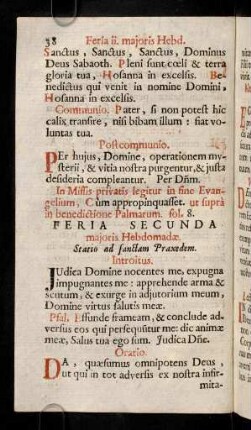 38 Feria ii. majoris Hebd.
Sanctus, Sanctus, Sanctus, Dominus
Deus Sabaoth. Pleni sunt cœli & terra
gloria tua, Hosanna in excelsis. Be-
nedictus qui venit in nomine Domini,
Hosanna in excelsis.
Communio. Pater, si non potest hic
calix transire, nisi bibam illum : fiat vo-
luntas tua.
Postcommunio.
PEr hujus, Domine, operationem my-
sterii, & vitia nostra purgentur, & justa
desideria compleantur. Per Dñm.
In Missis privatis legitur in fine Evan-
gelium, Cùm appropinquasset. ut suprà
in benedictione Palmarum. fol. 8.
FERIA SECUNDA
majoris Hebdomadæ.
Statio ad sanctam Praxedem.
Introitus.
JUdica Domine nocentes me, expugna
impugnantes me : apprehende arma &
scutum, & exurge in adjutorium meum,
Domine virtus salutis meæ.
Psal. Effunde frameam, & conclude ad-
versus eos qui persequuntur me: dic animæ
meæ, Salus tua ego sum. Judica Dñe.
Oratio.
DA, quæsumus omnipotens Deus,
ut qui in tot adversis ex nostra infir-
mita-